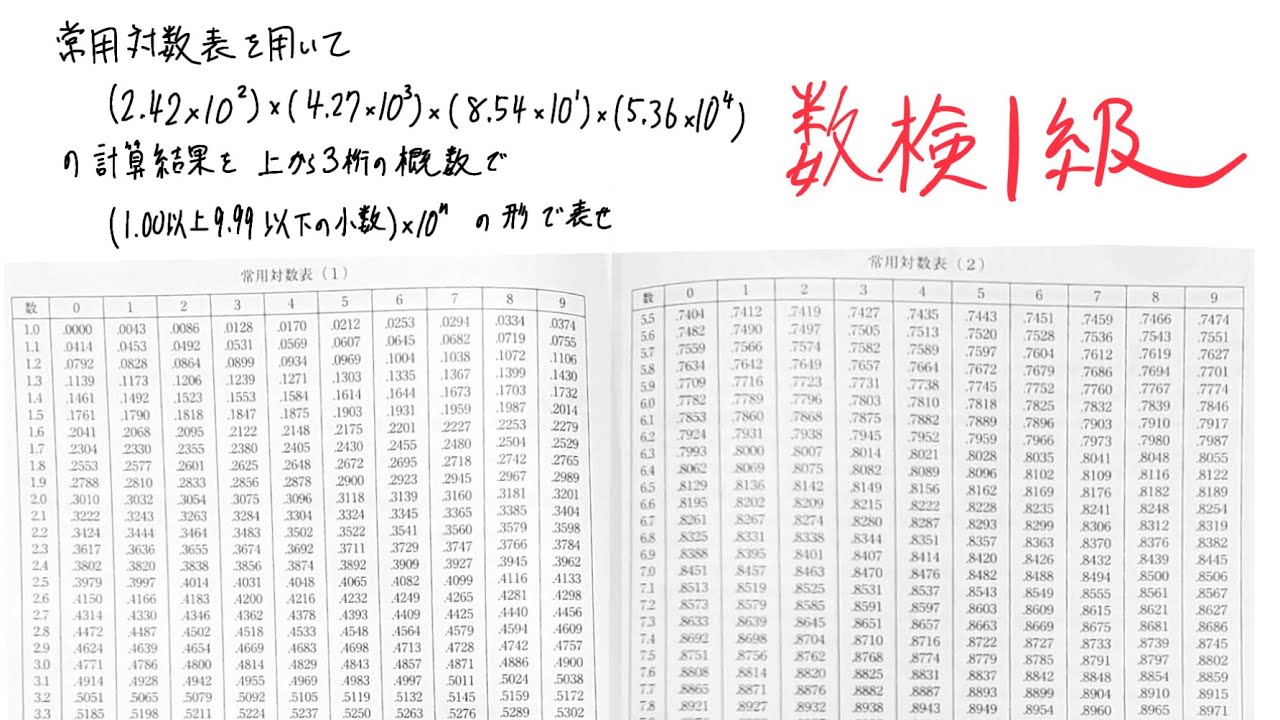 常用対数表を用いて
(2.42×10²)×(4.27×10³)×(8.54×10¹)×(5.36×10⁴)
の計算結果を 上から3桁の概数で
(1.00以上9.99以下の小数)×10ⁿ の形で表せ
数検1級
常用対数表(1)
数 0 1 2 3 4 5 6 7 8 9
1.0 .0000 .0043 .0086 .0128 .0170 .0212 .0253 .0294 .0334 .0374
1.1 .0414 .0453 .0492 .0531 .0569 .0607 .0645 .0682 .0719 .0755
1.2 .0792 .0828 .0864 .0899 .0934 .0969 .1004 .1038 .1072 .1106
1.3 .1139 .1173 .1206 .1239 .1271 .1303 .1335 .1367 .1399 .1430
1.4 .1461 .1492 .1523 .1553 .1584 .1614 .1644 .1673 .1703 .1732
1.5 .1761 .1790 .1818 .1847 .1875 .1903 .1931 .1959 .1987 .2014
1.6 .2041 .2068 .2095 .2122 .2148 .2175 .2201 .2227 .2253 .2279
1.7 .2304 .2330 .2355 .2380 .2405 .2430 .2455 .2480 .2504 .2529
1.8 .2553 .2577 .2601 .2625 .2648 .2672 .2695 .2718 .2742 .2765
1.9 .2788 .2810 .2833 .2856 .2878 .2900 .2923 .2945 .2967 .2989
2.0 .3010 .3032 .3054 .3075 .3096 .3118 .3139 .3160 .3181 .3201
2.1 .3222 .3243 .3263 .3284 .3304 .3324 .3345 .3365 .3385 .3404
2.2 .3424 .3444 .3464 .3483 .3502 .3522 .3541 .3560 .3579 .3598
2.3 .3617 .3636 .3655 .3674 .3692 .3711 .3729 .3747 .3766 .3784
2.4 .3802 .3820 .3838 .3856 .3874 .3892 .3909 .3927 .3945 .3962
2.5 .3979 .3997 .4014 .4031 .4048 .4065 .4082 .4099 .4116 .4133
2.6 .4150 .4166 .4183 .4200 .4216 .4232 .4249 .4265 .4281 .4298
2.7 .4314 .4330 .4346 .4362 .4378 .4393 .4409 .4425 .4440 .4456
2.8 .4472 .4487 .4502 .4518 .4533 .4548 .4564 .4579 .4594 .4609
2.9 .4624 .4639 .4654 .4669 .4683 .4698 .4713 .4728 .4742 .4757
3.0 .4771 .4786 .4800 .4814 .4829 .4843 .4857 .4871 .4886 .4900
3.1 .4914 .4928 .4942 .4955 .4969 .4983 .4997 .5011 .5024 .5038
3.2 .5051 .5065 .5079 .5092 .5105 .5119 .5132 .5145 .5159 .5172
3.3 .5185 .5198 .5211 .5224 .5237 .5250 .5263 .5276 .5289 .5302
常用対数表(2)
数 0 1 2 3 4 5 6 7 8 9
5.5 .7404 .7412 .7419 .7427 .7435 .7443 .7451 .7459 .7466 .7474
5.6 .7482 .7490 .7497 .7505 .7513 .7520 .7528 .7536 .7543 .7551
5.7 .7559 .7566 .7574 .7582 .7589 .7597 .7604 .7612 .7619 .7627
5.8 .7634 .7642 .7649 .7657 .7664 .7672 .7679 .7686 .7694 .7701
5.9 .7709 .7716 .7723 .7731 .7738 .7745 .7752 .7760 .7767 .7774
6.0 .7782 .7789 .7796 .7803 .7810 .7818 .7825 .7832 .7839 .7846
6.1 .7853 .7860 .7868 .7875 .7882 .7889 .7896 .7903 .7910 .7917
6.2 .7924 .7931 .7938 .7945 .7952 .7959 .7966 .7973 .7980 .7987
6.3 .7993 .8000 .8007 .8014 .8021 .8028 .8035 .8041 .8048 .8055
6.4 .8062 .8069 .8075 .8082 .8089 .8096 .8102 .8109 .8116 .8122
6.5 .8129 .8136 .8142 .8149 .8156 .8162 .8169 .8176 .8182 .8189
6.6 .8195 .8202 .8209 .8215 .8222 .8228 .8235 .8241 .8248 .8254
6.7 .8261 .8267 .8274 .8280 .8287 .8293 .8299 .8306 .8312 .8319
6.8 .8325 .8331 .8338 .8344 .8351 .8357 .8363 .8370 .8376 .8382
6.9 .8388 .8395 .8401 .8407 .8414 .8420 .8426 .8432 .8439 .8445
7.0 .8451 .8457 .8463 .8470 .8476 .8482 .8488 .8494 .8500 .8506
7.1 .8513 .8519 .8525 .8531 .8537 .8543 .8549 .8555 .8561 .8567
7.2 .8573 .8579 .8585 .8591 .8597 .8603 .8609 .8615 .8621 .8627
7.3 .8633 .8639 .8645 .8651 .8657 .8663 .8669 .8675 .8681 .8686
7.4 .8692 .8698 .8704 .8710 .8716 .8722 .8727 .8733 .8739 .8745
7.5 .8751 .8756 .8762 .8768 .8774 .8779 .8785 .8791 .8797 .8802
7.6 .8808 .8814 .8820 .8825 .8831 .8837 .8842 .8848 .8854 .8859
7.7 .8865 .8871 .8876 .8882 .8887 .8893 .8899 .8904 .8910 .8915
7.8 .8921 .8927 .8932 .8938 .8943 .8949 .8954 .8960 .8965 .8971